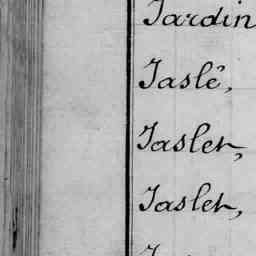 Jardin
Jaslé,
Jaslet,
Jaslet,